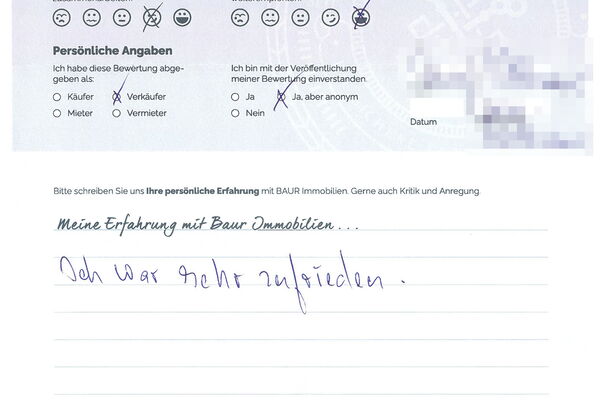 Persönliche Angaben
Ich habe diese Bewertung abge-
geben als:
Käufer
Verkäufer
Mieter
Vermieter
Ich bin mit der Veröffentlichung
meiner Bewertung einverstanden.
Ja
Ja, aber anonym
Nein
Datum
Bitte schreiben Sie uns Ihre persönliche Erfahrung mit BAUR Immobilien. Gerne auch Kritik und Anregung.
Meine Erfahrung mit Baur Immobilien...
Ich war sehr zufrieden.